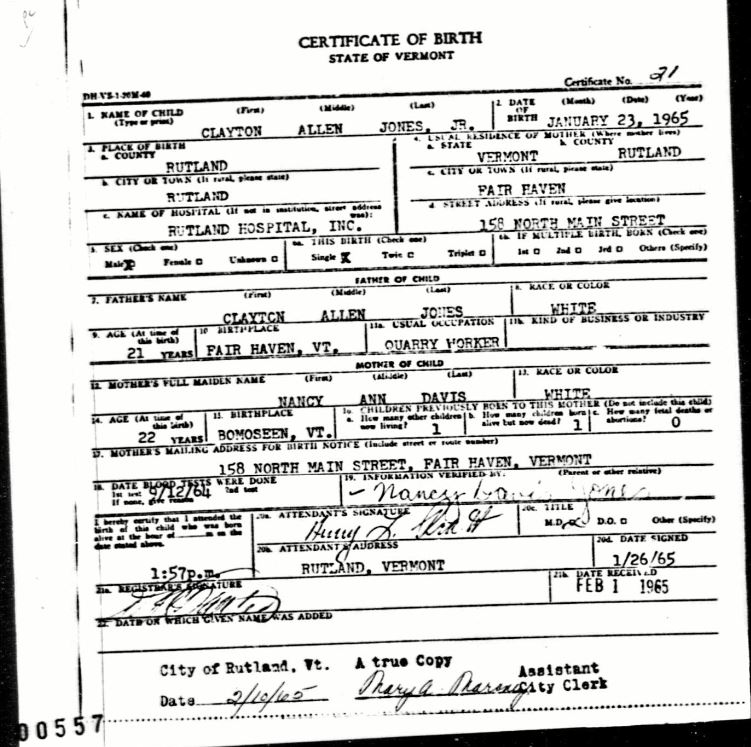 CERTIFICATE OF BIRTH
STATE OF VERMONT
Certificate No. 21
1. NAME OF CHILD (First) (Middle) (Last) 2. DATE OF BIRTH (Month) (Date) (Year)
(Type or print)
CLAYTON ALLEN JONES, JR. JANUARY 23, 1965
3. PLACE OF BIRTH 4. USUAL RESIDENCE OF MOTHER (Where mother lives)
a. COUNTY a. STATE b. COUNTY
RUTLAND VERMONT RUTLAND
b. CITY OR TOWN (If rural, please state) c. CITY OR TOWN (If rural, please state)
RUTLAND FAIR HAVEN
c. NAME OF HOSPITAL (If not in institution, street address was): d. STREET ADDRESS (If rural, please give location)
RUTLAND HOSPITAL, INC. 158 NORTH MAIN STREET
5. SEX (Check one) 6a. THIS BIRTH (Check one) 6b. IF MULTIPLE BIRTH, BORN (Check one)
Male X Female Unknown Single X Twin Triplet 1st 2nd 3rd Others (Specify)
FATHER OF CHILD
7. FATHER'S NAME (First) (Middle) (Last) 8. RACE OR COLOR
CLAYTON ALLEN JONES WHITE
9. AGE (At time of this birth) 10. BIRTHPLACE 11a. USUAL OCCUPATION 11b. KIND OF BUSINESS OR INDUSTRY
21 YEARS FAIR HAVEN, VT. QUARRY WORKER
MOTHER OF CHILD
12. MOTHER'S FULL MAIDEN NAME (First) (Middle) (Last) 13. RACE OR COLOR
NANCY ANN DAVIS WHITE
14. AGE (At time of this birth) 15. BIRTHPLACE 16. CHILDREN PREVIOUSLY BORN TO THIS MOTHER (Do not include this child)
a. How many other children now living? b. How many children born alive but now dead? c. How many fetal deaths or abortions?
22 YEARS BOMOSEEN, VT. 1 1 0
17. MOTHER'S MAILING ADDRESS FOR BIRTH NOTICE (Include street or route number)
158 NORTH MAIN STREET, FAIR HAVEN, VERMONT
18. DATE BLOOD TESTS WERE DONE 19. INFORMATION VERIFIED BY: (Parent or other relative)
1st test 9/12/64 2nd test
If none, give reason
Nancy Davis Jones
I hereby certify that I attended the birth of this child who was born alive at the hour of m on the date stated above.
20a. ATTENDANT'S SIGNATURE 20c. TITLE
Henry L.
M.D. D.O. Other (Specify)
20b. ATTENDANT'S ADDRESS 20d. DATE SIGNED
1:57p.m. RUTLAND, VERMONT 1/26/65
21a. REGISTRAR'S SIGNATURE 21b. DATE RECEIVED
FEB 1 1965
22. DATE ON WHICH GIVEN NAME WAS ADDED
City of Rutland, Vt. A true Copy Assistant
Date 2/10/65 Mary A. City Clerk
00557